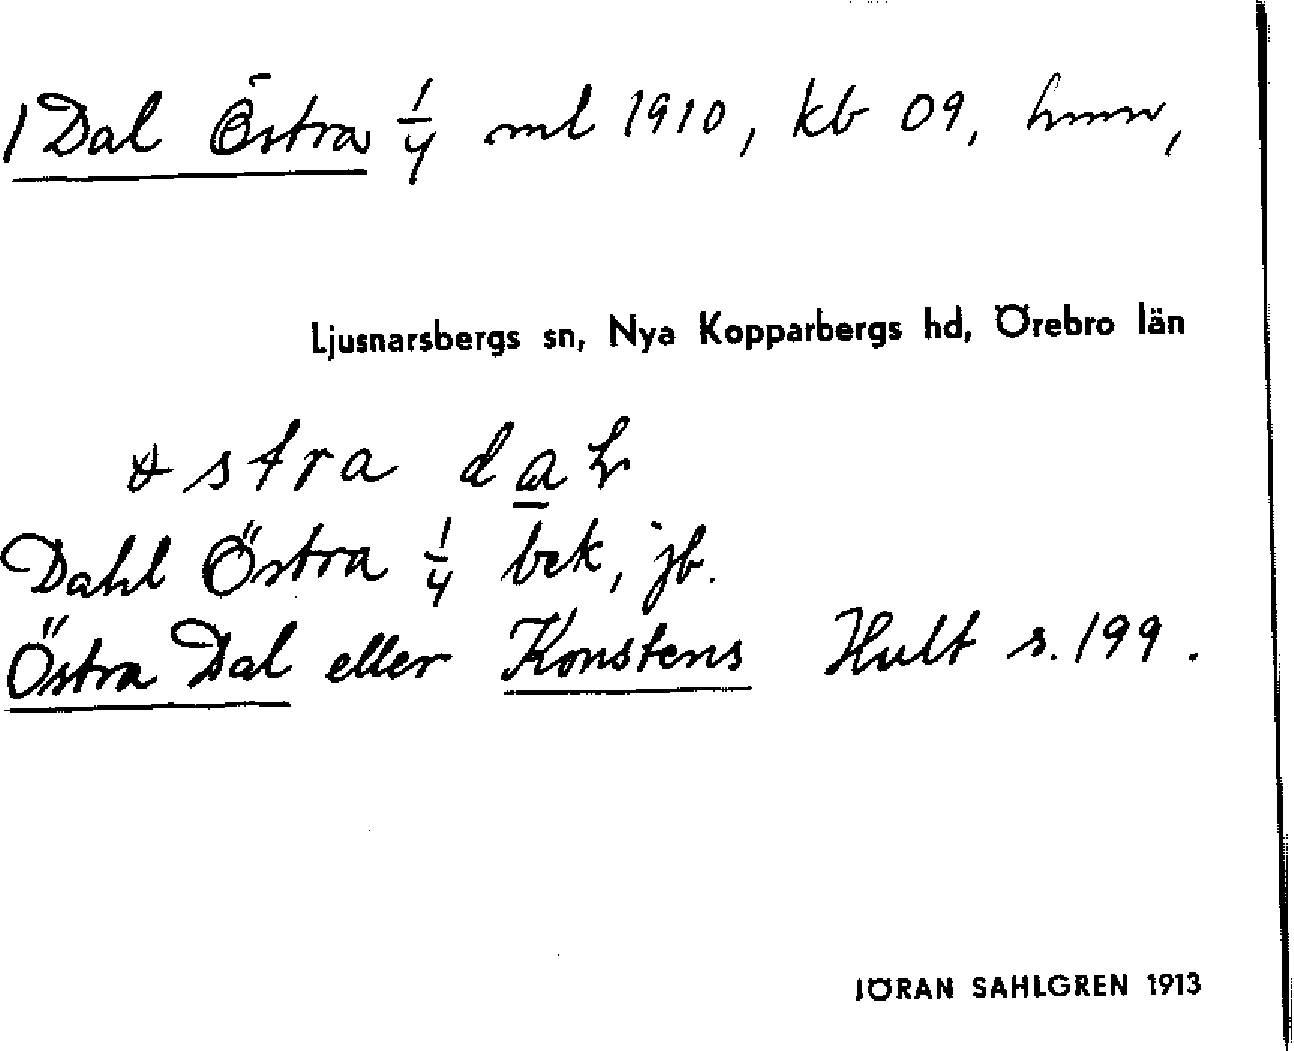 1 Dal Östra 1/4 ml 1910, kb 09, hmn,
Ljusnarsbergs sn, Nya Kopparbergs hd, Örebro län
stra dal
Dahl Östra 1/4 bek, jb.
Östra Dal eller Konstens Hult s. 199.
JÖRAN SAHLGREN 1913